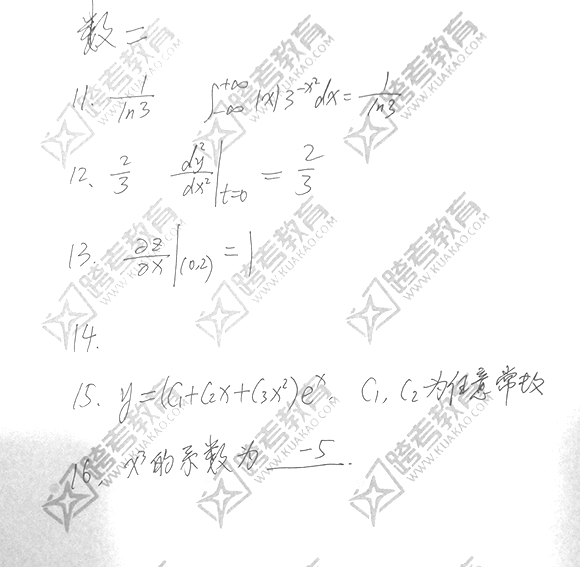 数二
11. 1/ln3 ∫_{-∞}^{+∞} |x| 3^{-x²} dx = 1/ln3
12、 2/3 dy²/dx² |_{t=0} = 2/3
13. ∂z/∂x |_{(0,2)} = 1
14.
15. y = (C₁+C₂x+C₃x²)eˣ. C₁, C₂为任意常数
16、 x³的系数为 -5.
跨考教育
WWW.KUAKAO.COM